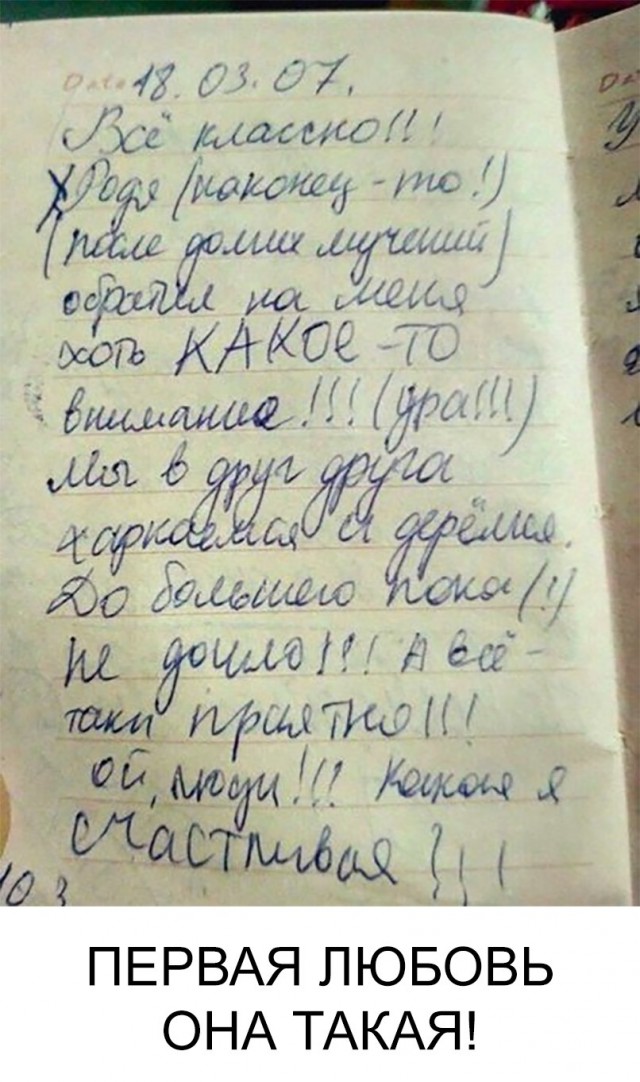 Date 18.03.07.
Всё классно!!!
Родя (наконец-то!)
(после долгих мучений)
обратил на меня
хоть КАКОЕ-ТО
внимание!!! (ура!!!)
Мы в друг друга
харкаемся и дерёмся.
До большего пока(!)
не дошло!!! А всё-
таки приятно!!!
ой, люди!!! Какая я
счастливая!!!
ПЕРВАЯ ЛЮБОВЬ
ОНА ТАКАЯ!